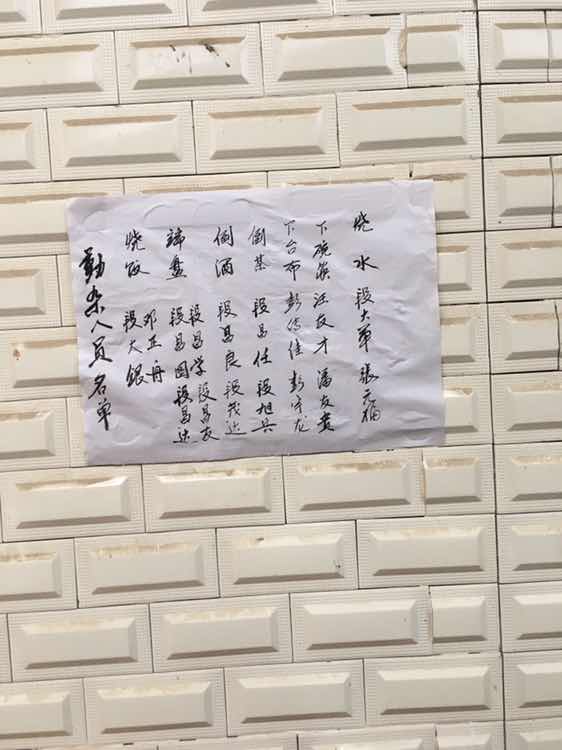 勤杂人员名单
烧饭 段大银
邓正舟
盘 段昌国 段昌达
段昌学 段昌友
倒酒 段昌良 段我达
倒茶 段昌任 段旭兵
下台布 彭传佳 彭守龙
下碗筷 汪友才 潘友贵
烧水 段大 張元福